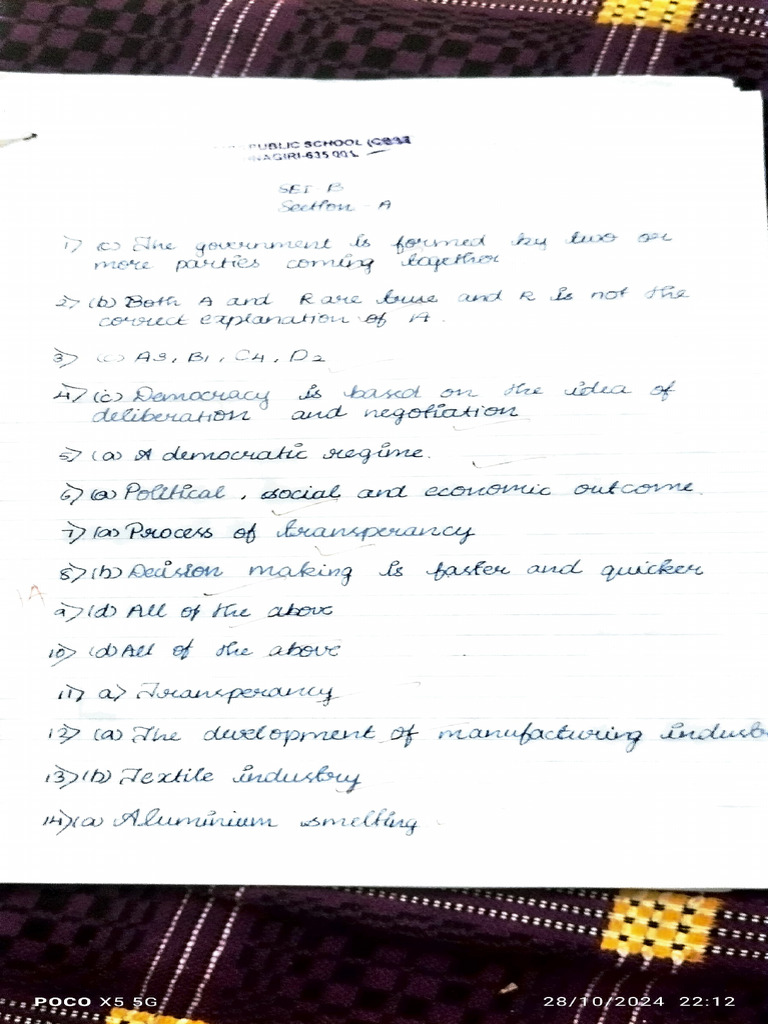 PUBLIC SCHOOL (CBSE
NAGIRI-635 001
SET-B
Section - A
1) (c) The government is formed by two or
more parties coming together
2) (b) Both A and R are true and R is not the
correct explanation of A.
3) (c) A3, B1, C4, D2
4) (c) Democracy is based on the idea of
deliberation and negotiation
5) (a) A democratic regime.
6) (a) Political, social and economic outcome.
7) (a) Process of transperancy
8) (b) Decision making is faster and quicker
14
9) (d) All of the above
10) (d) All of the above
11) a) Transperancy
12) (a) The development of manufacturing industr
13) (b) Textile industry
14) (a) Aluminium smelting
POCO X5 5G
28/10/2024 22:12